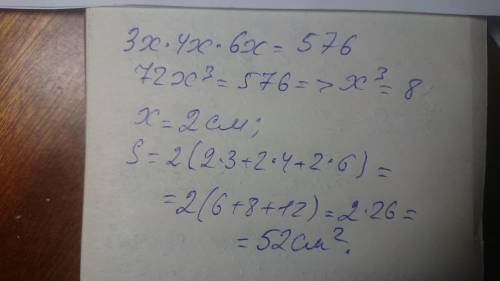 3x·4x·6x = 576
72x³ = 576 => x³ = 8
x = 2 см;
S = 2(2·3+2·4+2·6) =
= 2(6+8+12) = 2·26 =
= 52 см².